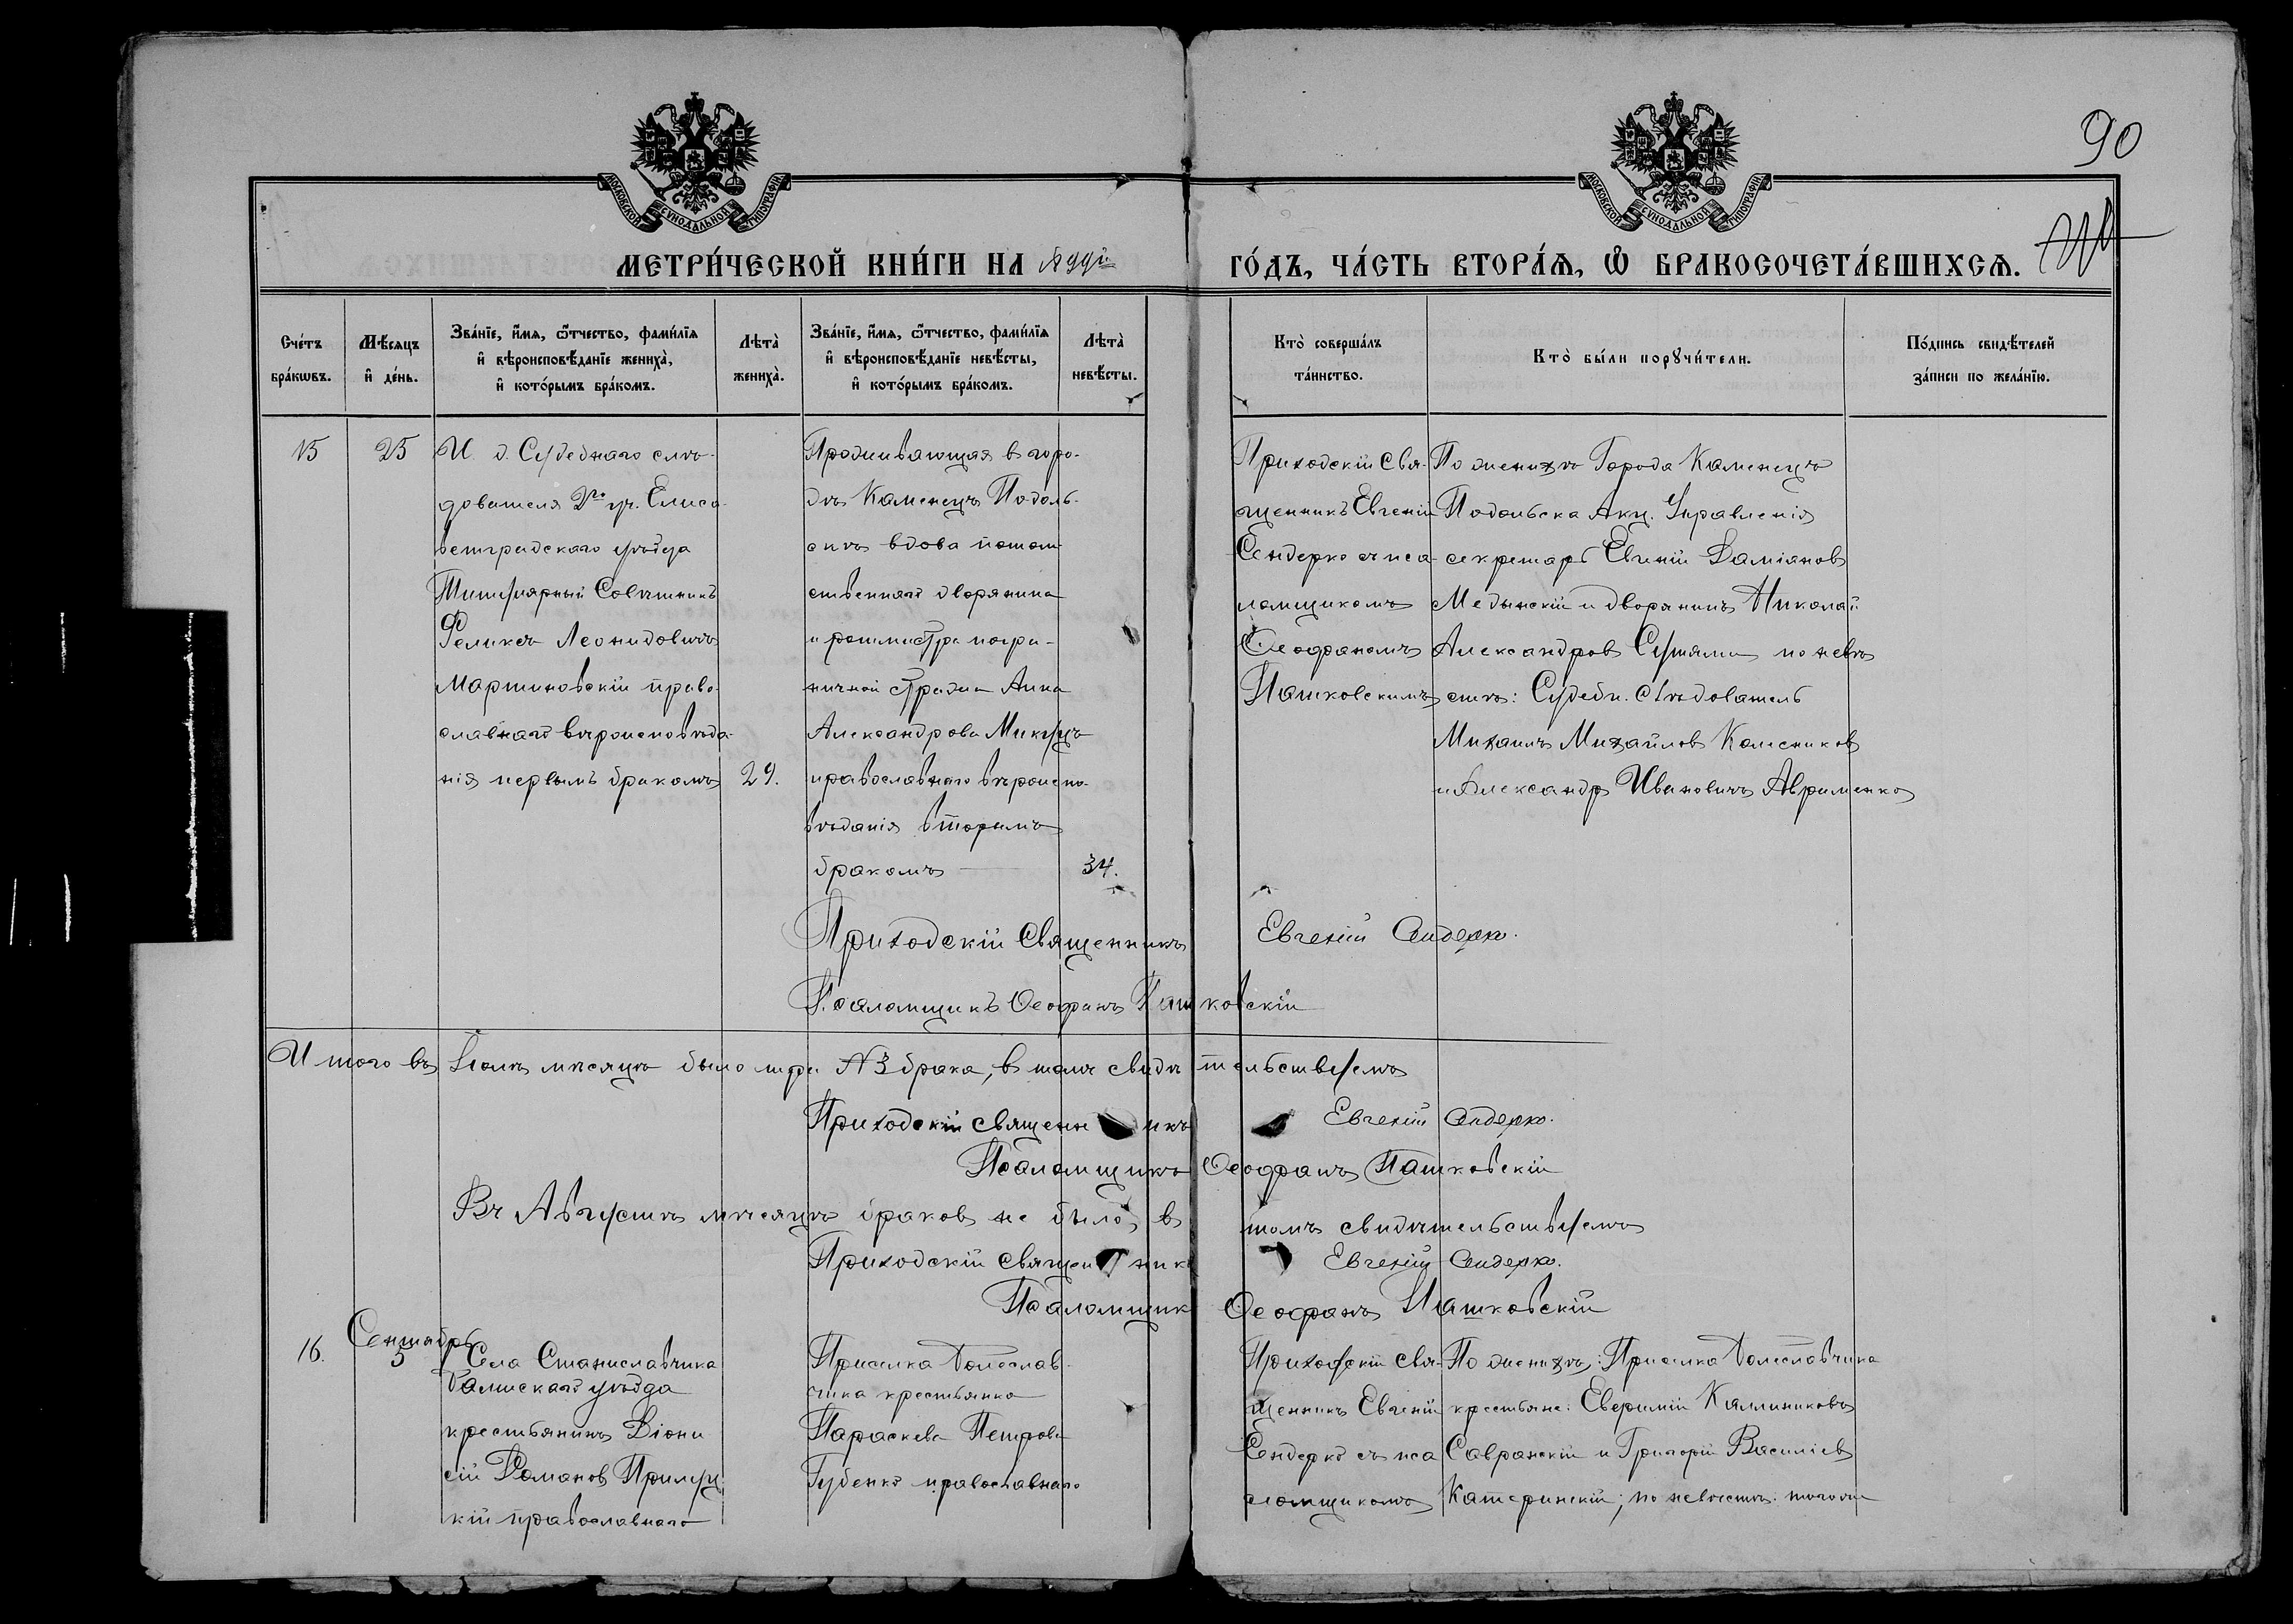 90
МОСКОВСКОЙ СѴНОДАЛЬНОЙ ТИПОГРАФІИ
МОСКОВСКОЙ СѴНОДАЛЬНОЙ ТИПОГРАФІИ
МЕТРИ́ЧЕСКОЙ КНИ́ГИ НА
ГО́ДЪ, ЧА́СТЬ ВТОРА́Ѧ, Ѡ҆ БРАКОСОЧЕТА́ВШИХСѦ.
Сче́тъ
бра́кѡвъ.
Мѣ́сяцъ
и҆ де́нь.
Зва́нїе, и҆́мѧ, ѻ҆́тчество, фами́лїѧ
и҆ вѣроисповѣ́данїе жениха̀,
и҆ кото́рымъ бра́комъ.
Лѣ́та̀
жениха̀.
Зва́нїе, и҆́мѧ, ѻ҆́тчество, фами́лїѧ
и҆ вѣроисповѣ́данїе невѣ́сты,
и҆ кото́рымъ бра́комъ.
Лѣ́та̀
невѣ́сты.
Кто̀ соверша́лъ
та́инство.
Кто̀ бы́ли порꙋчи́тели.
По́дпись свидѣ́телей
за́писи по жела́нїю.
15
25
И. д. Судебнаго слѣ-
дователя 2го уч. Елиса-
ветградскаго уѣзда
Титулярный Совѣтникъ
Феликсъ Леонидовичъ
Мартиновскій право-
славнаго вѣроисповѣда-
нія первымъ бракомъ
29.
Проживающая в горо-
дѣ Каменецъ Подоль-
скѣ вдова потом-
ственнаго дворянина
и ротмистра погра-
ничной стражи Анна
Александрова Микуцъ
православнаго вѣроиспо-
вѣданія вторымъ
бракомъ
34.
Приходскій Свя-
щенникъ Евгеній
Сендерко съ пса-
ломщикомъ
Ѳеофаномъ
Пашковскимъ
По женихѣ Города Каменецъ
Подольска Акц. Управленія
секретарь Евгеній Даміановъ
Медынскій и дворянинъ Николай
Александровъ по невѣ-
стѣ: Судебн. слѣдователь
Михаилъ Михайловъ Колесниковъ
и Александръ Ивановичъ Авраменко
Приходскій Священникъ Евгеній Сендерко.
Псаломщикъ Ѳеофанъ Пашковскій
Итого въ Іюлѣ мѣсяцѣ было три № 3 брака, в томъ свидѣтельствуемъ
Приходскій священникъ Евгеній Сендерко.
Псаломщикъ Ѳеофанъ Пашковскій
Въ Августѣ мѣсяцѣ браковъ не было, в томъ свидѣтельствуемъ
Приходскій священникъ Евгеній Сендерко.
Псаломщик Ѳеофанъ Пашковскій
Сентябрь
16.
5
Села Станиславчика
уѣзда
крестьянинъ Діони-
сій Романов
кій православнаго
Приселка Болеслав-
чика крестьянка
Параскева Петрова
Губенко православнаго
Приходскій свя-
щенникъ Евгеній
Сендерко съ пса-
ломщикомъ
По женихѣ: Приселка Болеславчика
крестьяне: Евфимій Каллиниковъ
Савранскій и Григорій Василіев
Катеринскій; по невѣстѣ: того же